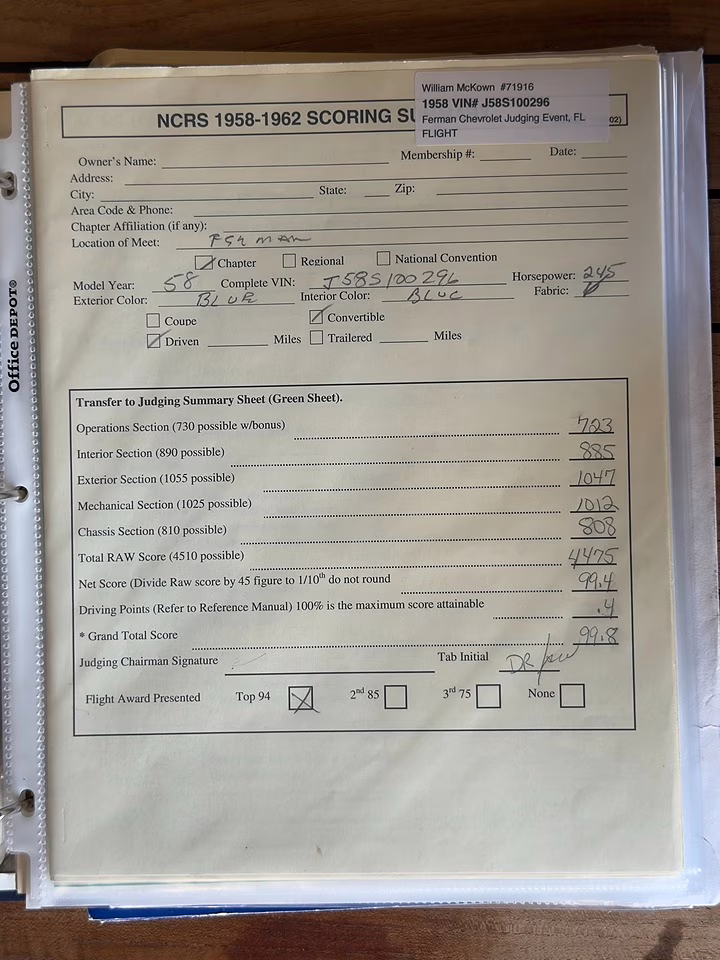 William McKown #71916
1958 VIN# J58S100296
Ferman Chevrolet Judging Event, FL
FLIGHT
NCRS 1958-1962 SCORING SU
02)
Owner's Name: Membership #: Date:
Address:
City: State: Zip:
Area Code & Phone:
Chapter Affiliation (if any):
Location of Meet: Ferman
Chapter Regional National Convention
Model Year: 58 Complete VIN: J58S100296 Horsepower: 245
Exterior Color: BLUE Interior Color: BLUE Fabric:
Coupe Convertible
Driven Miles Trailered Miles
Office DEPOT®
Transfer to Judging Summary Sheet (Green Sheet).
Operations Section (730 possible w/bonus) 723
Interior Section (890 possible) 885
Exterior Section (1055 possible) 1047
Mechanical Section (1025 possible) 1012
Chassis Section (810 possible) 808
Total RAW Score (4510 possible) 4475
Net Score (Divide Raw score by 45 figure to 1/10th do not round 99.4
Driving Points (Refer to Reference Manual) 100% is the maximum score attainable .4
* Grand Total Score 99.8
Judging Chairman Signature Tab Initial
Flight Award Presented Top 94 2nd 85 3rd 75 None